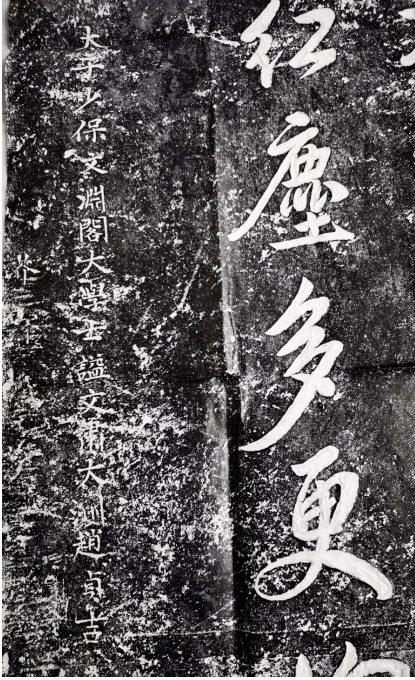 紅塵多更
太子少保文淵閣大學士謚文肅大洲趙貞吉